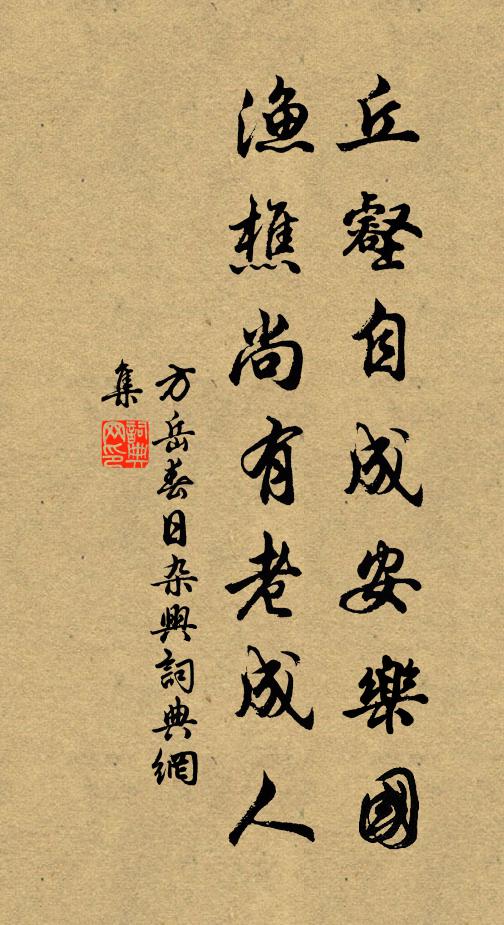 丘壑自成安樂國
漁樵尚有老成人
方岳春日杂興詞典網
集
詞典
网印